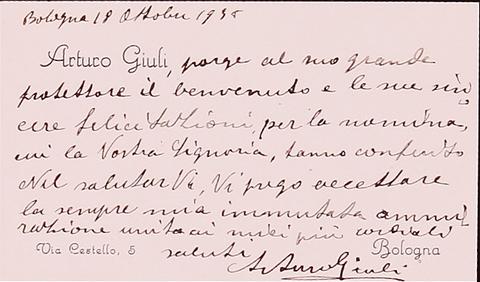 Bologna 18 Ottobre 1935
Arturo Giuli, porge al suo grande
protettore il benvenuto e le sue sin
cere felicitazioni, per la nomina,
cui la Vostra Signoria, hanno conferito
Nel salutar Vi, Vi prego accettare
la sempre mia immutata ammi
razione unita ai miei più cordiali
Via Cestello, 5 saluti Bologna
Arturo Giuli